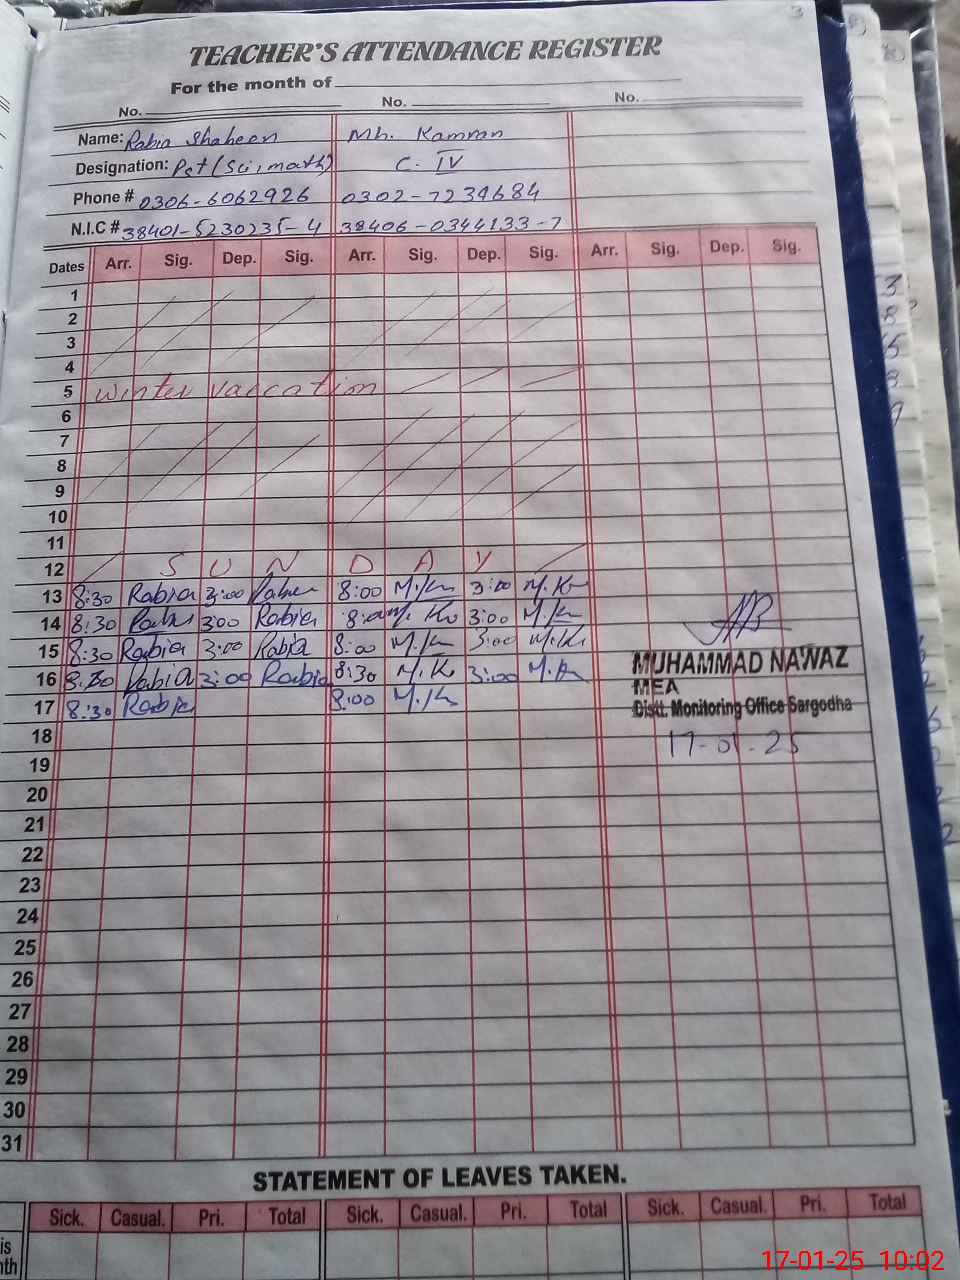 3
TEACHER'S ATTENDANCE REGISTER
For the month of
No. No. No.
Name: Rabia Shaheen Mh. Kamran
Designation: Pst (Sci, math) C. IV
Phone # 0306-6062926 0302-7234684
N.I.C # 38401-5230235-4 38406-0344133-7
Dates Arr. Sig. Dep. Sig. Arr. Sig. Dep. Sig. Arr. Sig. Dep. Sig.
1
2
3
4
5 winter vaccation
6
7
8
9
10
11
12 S U N D A Y
13 8:30 Rabia 3:00 8:00 M.Km 3:00 M.Km
14 8:30 Rabia 3:00 Rabia 8:00 M.Km 3:00 M.Km
15 8:30 Rabia 3:00 Rabia 8:00 M.Km 3:00 M.Km
16 8:30 Rabia 3:00 Rabia 8:30 M.Km 3:00 M.Km
17 8:30 Rabia 8:00 M.Km
MUHAMMAD NAWAZ
MEA
Distt. Monitoring Office Sargodha
17-01-25
18
19
20
21
22
23
24
25
26
27
28
29
30
31
STATEMENT OF LEAVES TAKEN.
Sick. Casual. Pri. Total Sick. Casual. Pri. Total Sick. Casual. Pri. Total
17-01-25 10:02